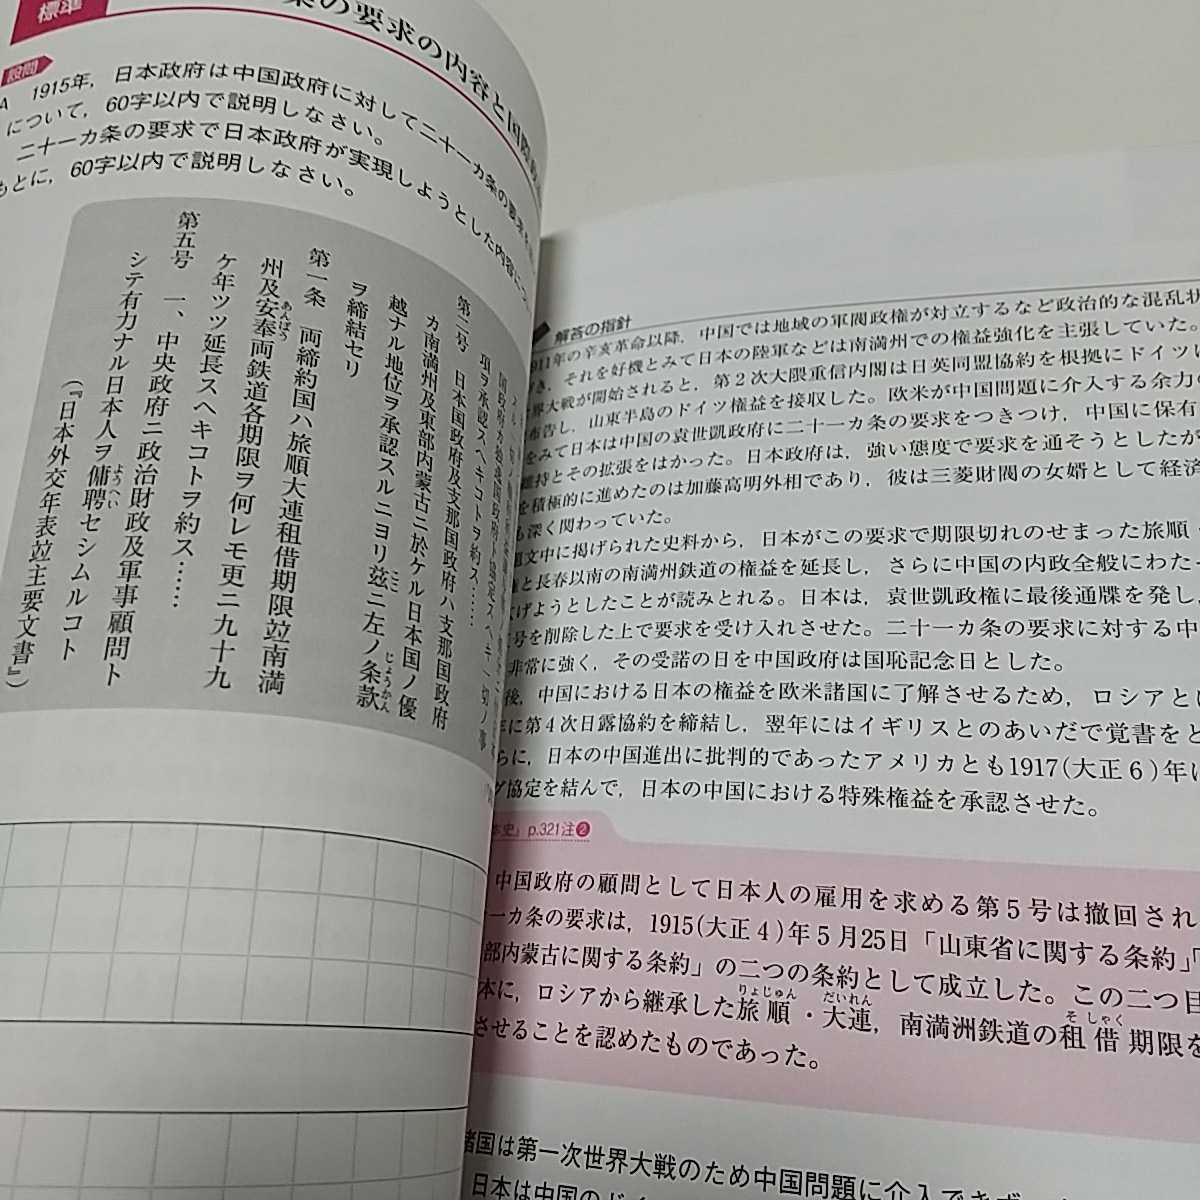 標準
条の要求の内容と国際
設問
A 1915年，日本政府は中国政府に対して二十一カ条の要求を
について，60字以内で説明しなさい。
二十一カ条の要求で日本政府が実現しようとした内容に
もとに，60字以内で説明しなさい。
国政府カ独逸国政府ト協定スヘキ一切ノ事
項ヲ承認スヘキコトヲ約ス……
第二号 日本国政府及支那国政府ハ支那国政府
カ南満州及東部内蒙古ニ於ケル日本国ノ優
越ナル地位ヲ承認スルニヨリ茲ニ左ノ条款
ヲ締結セリ
第一条 両締約国ハ旅順大連租借期限竝南満
州及安奉両鉄道各期限ヲ何レモ更ニ九十九
ケ年ツツ延長スヘキコトヲ約ス……
第五号 一、中央政府ニ政治財政及軍事顧問ト
シテ有力ナル日本人ヲ傭聘セシムルコト
（『日本外交年表竝主要文書』）
解答の指針
1911年の辛亥革命以降，中国では地域の軍閥政権が対立するなど政治的な混乱状
き，それを好機とみて日本の陸軍などは南満州での権益強化を主張していた。
界大戦が開始されると，第２次大隈重信内閣は日英同盟協約を根拠にドイツに
布告し，山東半島のドイツ権益を接収した。欧米が中国問題に介入する余力の
をみて日本は中国の袁世凱政府に二十一カ条の要求をつきつけ，中国に保有
維持とその拡張をはかった。日本政府は，強い態度で要求を通そうとしたが
を積極的に進めたのは加藤高明外相であり，彼は三菱財閥の女婿として経済
も深く関わっていた。
題文中に掲げられた史料から，日本がこの要求で期限切れのせまった旅順
と長春以南の南満州鉄道の権益を延長し，さらに中国の内政全般にわた
げようとしたことが読みとれる。日本は，袁世凱政権に最後通牒を発し
号を削除した上で要求を受け入れさせた。二十一カ条の要求に対する中
非常に強く，その受諾の日を中国政府は国恥記念日とした。
後，中国における日本の権益を欧米諸国に了解させるため，ロシアと
年に第４次日露協約を締結し，翌年にはイギリスとのあいだで覚書をと
らに，日本の中国進出に批判的であったアメリカとも1917(大正６)年に
グ協定を結んで，日本の中国における特殊権益を承認させた。
本史』p.321注❷
中国政府の顧問として日本人の雇用を求める第５号は撤回され
一カ条の要求は，1915(大正４)年５月25日「山東省に関する条約」
部内蒙古に関する条約」の二つの条約として成立した。この二つ目
本に，ロシアから継承した旅順・大連，南満洲鉄道の租借期限を
させることを認めたものであった。
諸国は第一次世界大戦のため中国問題に介入できず
日本は中国のド